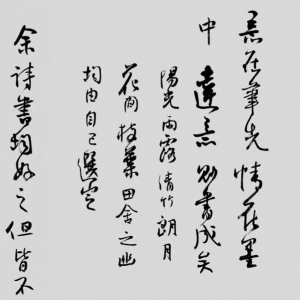 意在筆先情在墨
中 達意則書成矣
陽光雨露清竹朗月
花間枝葉田舍之幽
均由自己選定
余詩書均好之但皆不